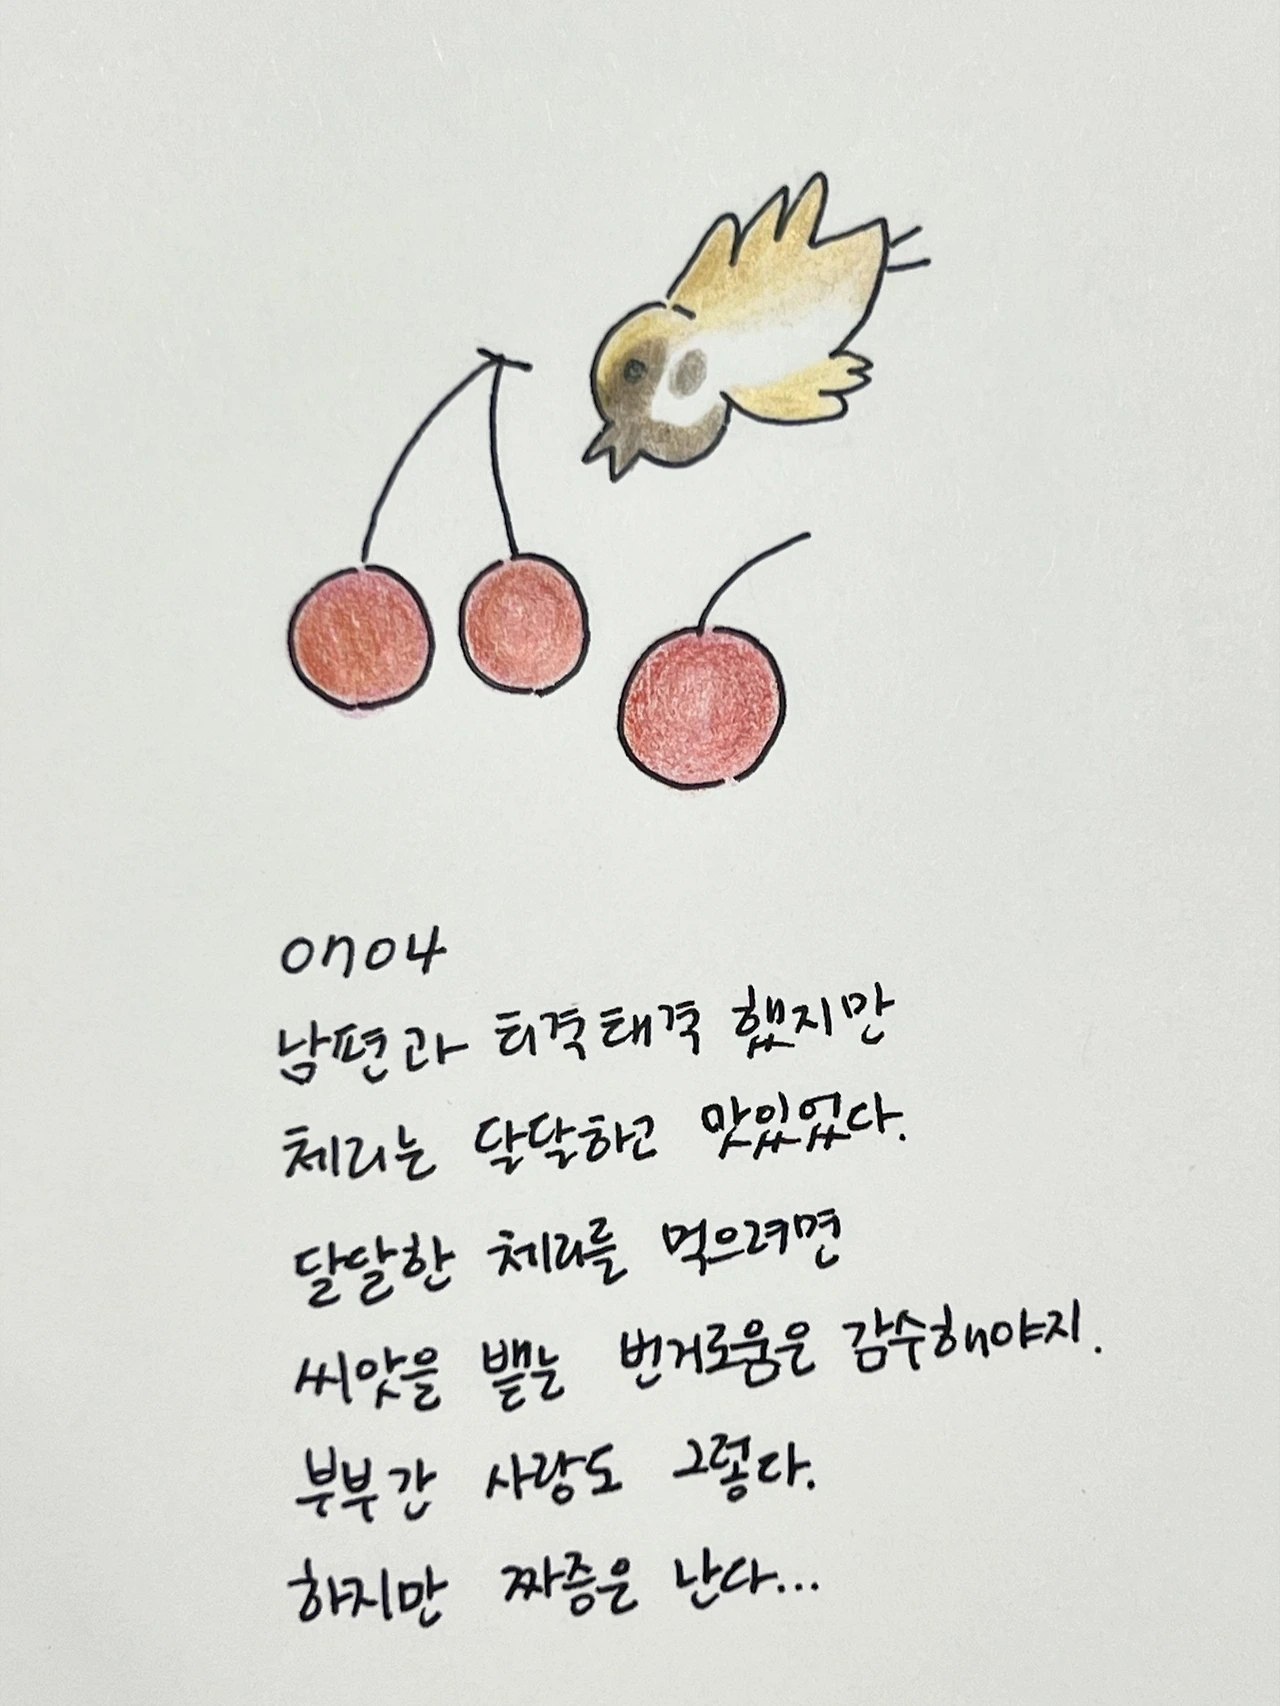 0704
남편과 티격태격 했지만
체리는 달달하고 맛있었다.
달달한 체리를 먹으려면
씨앗을 뱉는 번거로움은 감수해야지.
부부간 사랑도 그렇다.
하지만 짜증은 난다...